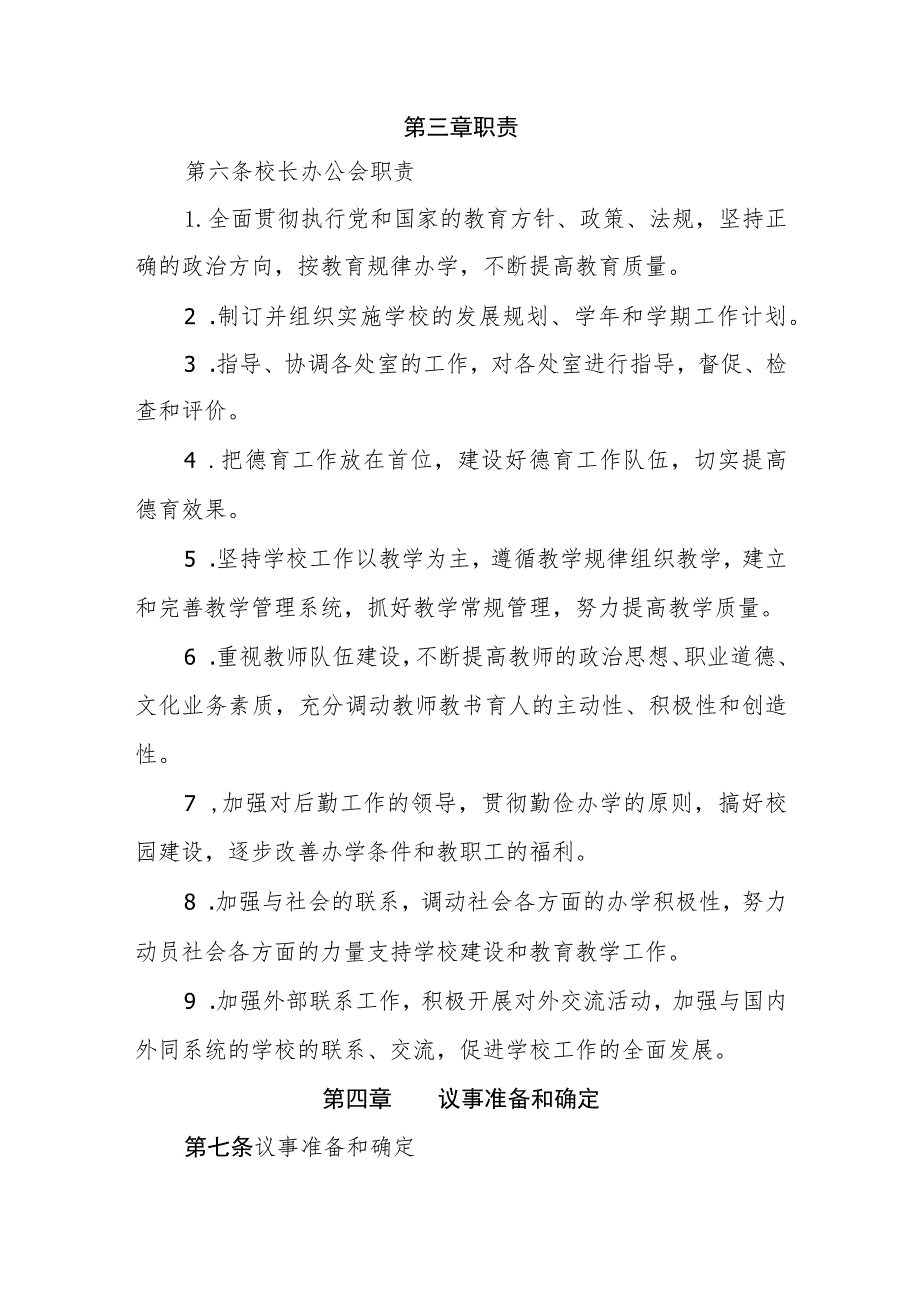 第三章职责
第六条校长办公会职责
1. 全面贯彻执行党和国家的教育方针、政策、法规，坚持正
确的政治方向，按教育规律办学，不断提高教育质量。
2 .制订并组织实施学校的发展规划、学年和学期工作计划。
3 .指导、协调各处室的工作，对各处室进行指导，督促、检
查和评价。
4 . 把德育工作放在首位，建设好德育工作队伍，切实提高
德育效果。
5 .坚持学校工作以教学为主，遵循教学规律组织教学，建立
和完善教学管理系统，抓好教学常规管理，努力提高教学质量。
6 .重视教师队伍建设，不断提高教师的政治思想、职业道德、
文化业务素质，充分调动教师教书育人的主动性、积极性和创造
性。
7 ,加强对后勤工作的领导，贯彻勤俭办学的原则，搞好校
园建设，逐步改善办学条件和教职工的福利。
8 .加强与社会的联系，调动社会各方面的办学积极性，努力
动员社会各方面的力量支持学校建设和教育教学工作。
9 .加强外部联系工作，积极开展对外交流活动，加强与国内
外同系统的学校的联系、交流，促进学校工作的全面发展。
第四章　　议事准备和确定
第七条议事准备和确定